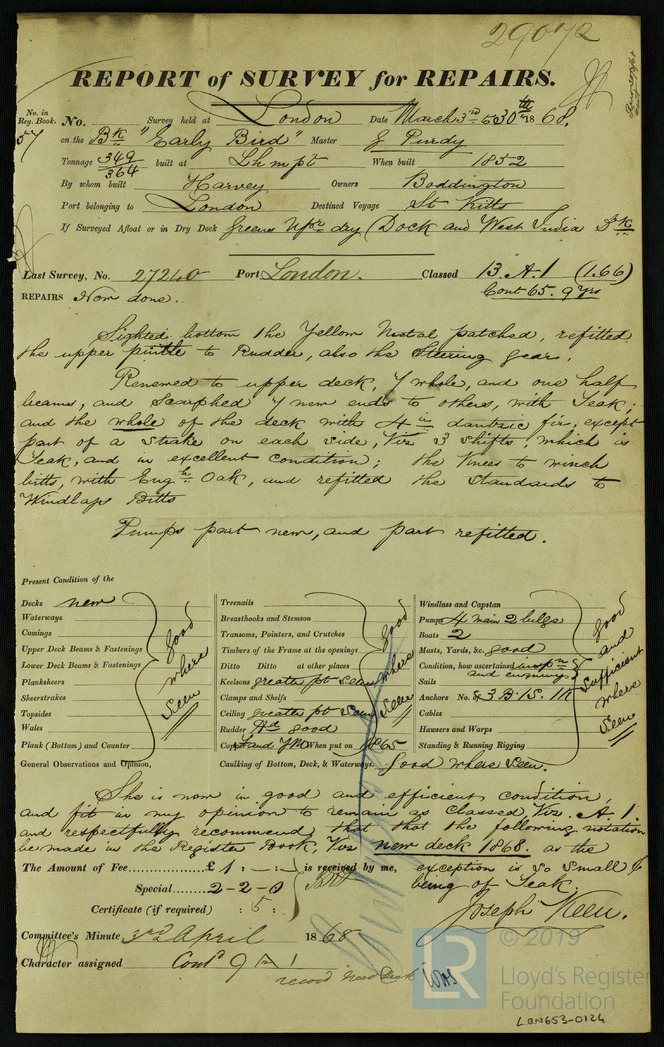 29072
REPORT of SURVEY for REPAIRS.
No. in Reg. Book. 57 No. Survey held at London Date March 3rd & 30th 1868.
on the Bk "Early Bird" Master J Purdy
Tonnage 349 364 built at Lhmpt When built 1852
By whom built Harvey Owners Boddington
Port belonging to London Destined Voyage St Kitts
If Surveyed Afloat or in Dry Dock Greens Upr dry Dock and West India Dk
Last Survey, No. 27240 Port London. Classed 13. A.1 (1.66)
Cont 65. 9 yrs
REPAIRS Now done.
Sighted bottom the Yellow Metal patched, refitted
the upper pintle to Rudder, also the Steering gears.
Renewed to upper deck, 7 whole, and one half
beams, and Scarphed 7 new ends to others, with Teak;
and the whole of the deck with 4 in dantzic fir, except
part of a Strake on each side, Viz 3 shifts, which is
Teak, and in excellent condition; the Knees to winch
bitts, with Engh Oak, and refitted the Standards to
Windlass Bitts
Pumps part new, and part refitted.
Present Condition of the
Decks new
Waterways
Comings
Upper Deck Beams & Fastenings
Lower Deck Beams & Fastenings
Planksheers
Sheerstrakes
Topsides
Wales
Plank (Bottom) and Counter
good where Seen
Treenails
Breasthooks and Stemson
Transoms, Pointers, and Crutches
Timbers of the Frame at the openings
Ditto Ditto at other places
Keelsons greater pt Seen
Clamps and Shelfs
Ceiling greater pt Seen
Rudder good
Copr and YM When put on 1865
good where Seen
Windlass and Capstan
Pumps 4 main 2 bilge
Boats 2
Masts, Yards, &c. good
Condition, how ascertained inspn & and enquiry
Sails
Anchors No. & 3 B. 1S. 1K
Cables
Hawsers and Warps
Standing & Running Rigging
good and Sufficient where Seen
General Observations and Opinion, Caulking of Bottom, Deck, & Waterways. Good where Seen.
She is now in good and efficient condition,
and fit in my opinion to remain as classed Viz. A.1.
and respectfully recommend, that that the following notation
be made in the Register Book. Viz new deck 1868. as the
exception is so small &
being of Teak.
The Amount of Fee £ 1 : - : - is received by me,
Special 2 - 2 - 0
Certificate (if required) : 5 :
Joseph Keen.
Committee's Minute 3rd April 1868
Character assigned Contd 9 A 1
record New Deck
© 2019
LR
Lloyd's Register
Foundation
LON653-0124